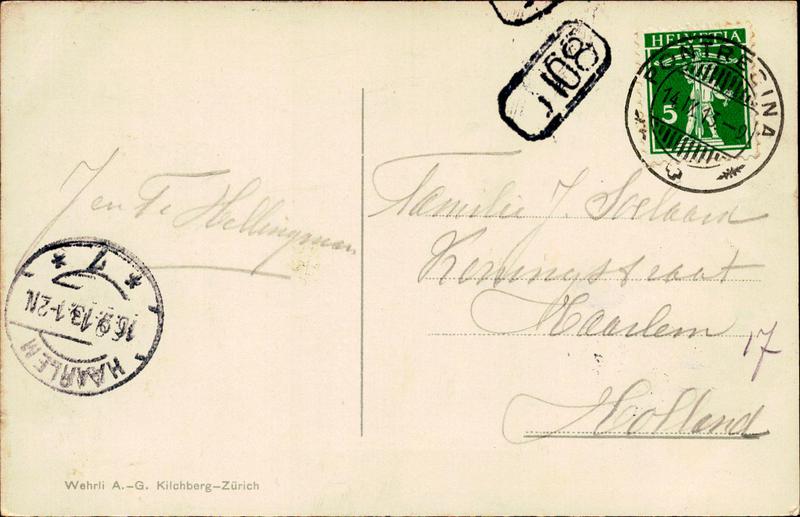 HELVETIA
5
PONTRESINA
14.IX.13.
1108
J en T. Hellingman
Familie J. Soelaard
Koningstraat
Haarlem
17
Holland
1
16.9.13.1-2N.
HAARLEM
Wehrli A.-G. Kilchberg-Zürich